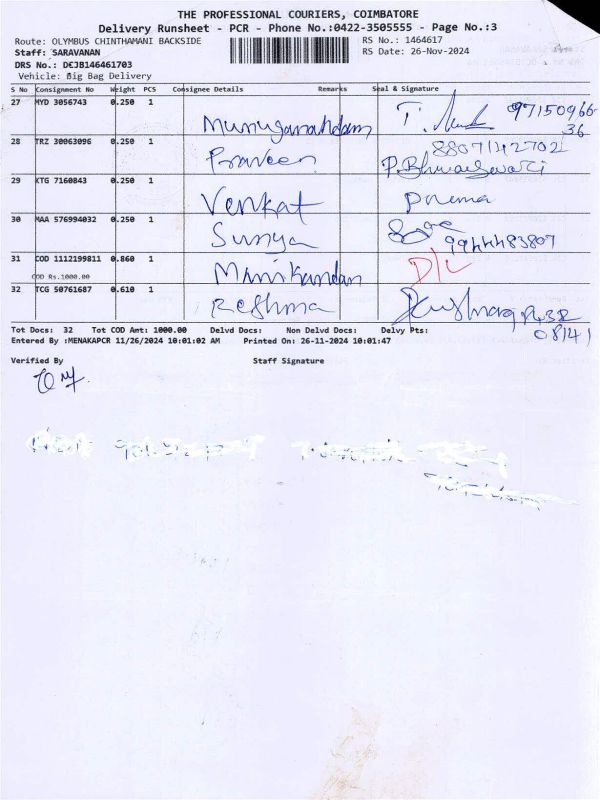 THE PROFESSIONAL COURIERS, COIMBATORE
Delivery Runsheet - PCR - Phone No.:0422-3505555 - Page No.:3
Route: OLYMBUS CHINTHAMANI BACKSIDE RS No.: 1464617
Staff: SARAVANAN RS Date: 26-Nov-2024
DRS No.: DEJB146461703
Vehicle: Big Bag Delivery
S No Consignment No Weight PCS Consignee Details Remarks Seal & Signature
27 MYD 3056743 0.250 1 97150966
Muruganandam 36
28 TRZ 30063096 0.250 1 8807142702
Praveen P. Bhuvaneswari
29 KTG 7160843 0.250 1
Venkat Prema
30 MAA 576994032 0.250 1
Surya 9944483807
31 COD 1112199811 0.860 1 D/L
COD Rs.1000.00 Manikandan
32 TCG 50761687 0.610 1
Reshma
08141
Tot Docs: 32 Tot COD Amt: 1000.00 Delvd Docs: Non Delvd Docs: Delvy Pts:
Entered By :MENAKAPCR 11/26/2024 10:01:02 AM Printed On: 26-11-2024 10:01:47
Verified By Staff Signature